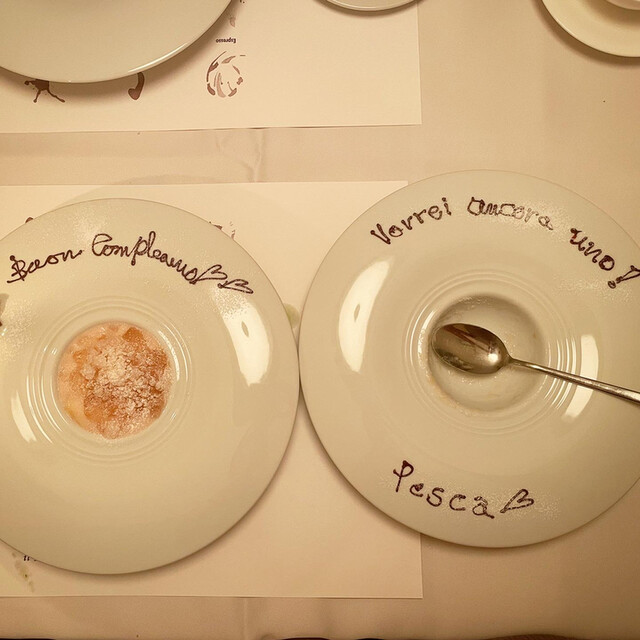 Espresso
Buon Compleanno
Vorrei ancora uno!
Pesca